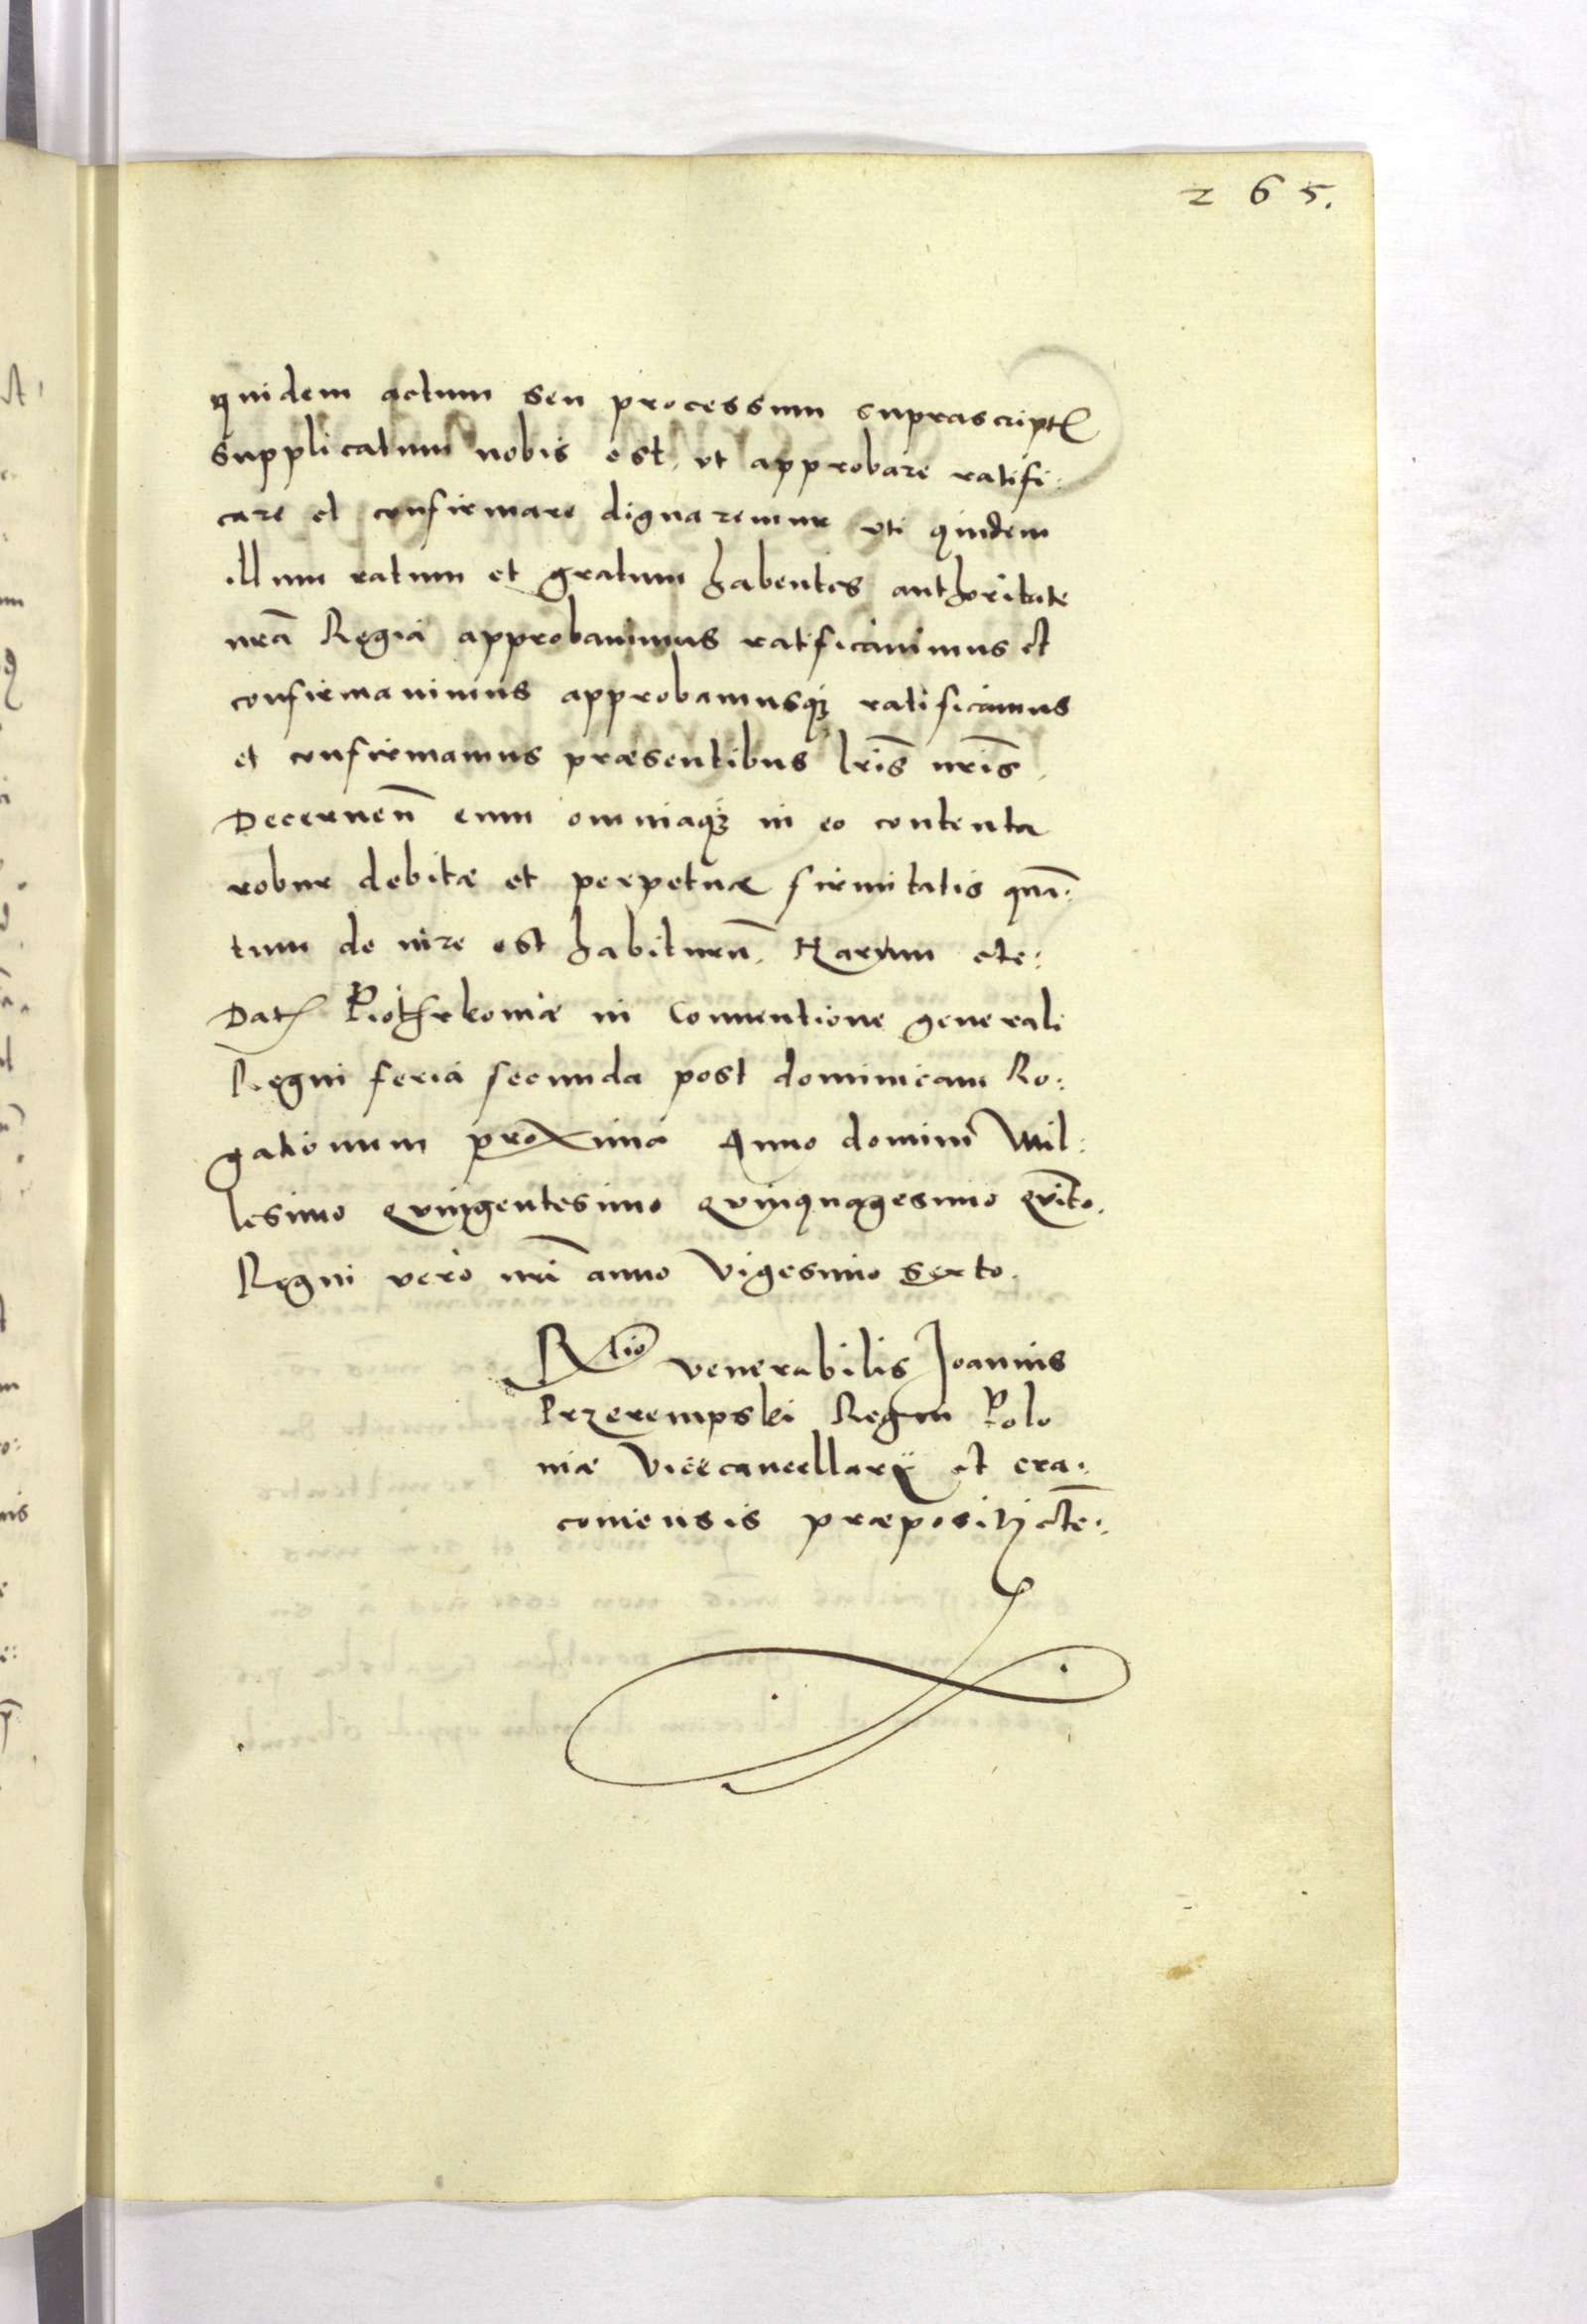 265.
quidem actum seu processum suprascript
supplicatum nobis est, ut approbare ratifi:
care et confirmare dignaremur uti quidem
illum ratum et gratum habentes authoritate
nrã Regia approbavimus ratificavimus et
confirmavimus approbamusq; ratificamus
et confirmamus præsentibus lrĩs nrĩs.
Decernen̄ eum omniaq; in eo contenta
robur debitæ et perpetuæ firmitatis quã:
tum de iure est habiturũ. Harum etc:
Dat Piothrkoviæ in Conventione generali
Regni feria secunda post dominicam Ro:
gationum proxima Anno domini Mil:
lesimo quingentesimo quinquagesimo quĩto.
Regni vero nrĩ anno vigesimo sexto.
Rtio venerabilis Joannis
Przerempski Regni Polo
niæ Vicecancellarÿ et cra:
coviensis præpositi etc: